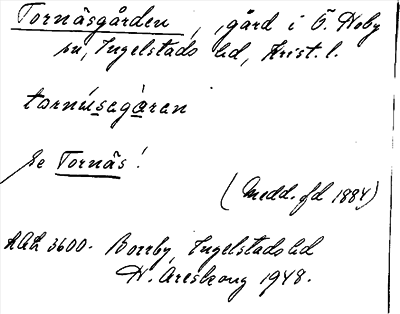 Tornäsgården, gård i Ö. Hoby
sn, Ingelstads hd, Krist. l.
tornúsagàren
Se Tornäs!
(Medd. fd 1884)
ALA 3600. Borrby, Ingelstads hd
H. Areskoug 1948.